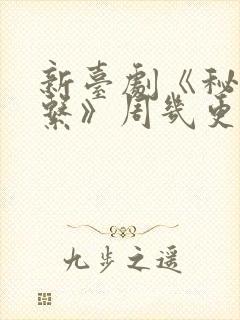 新臺劇《秘
繫》周幾更
九步之遥